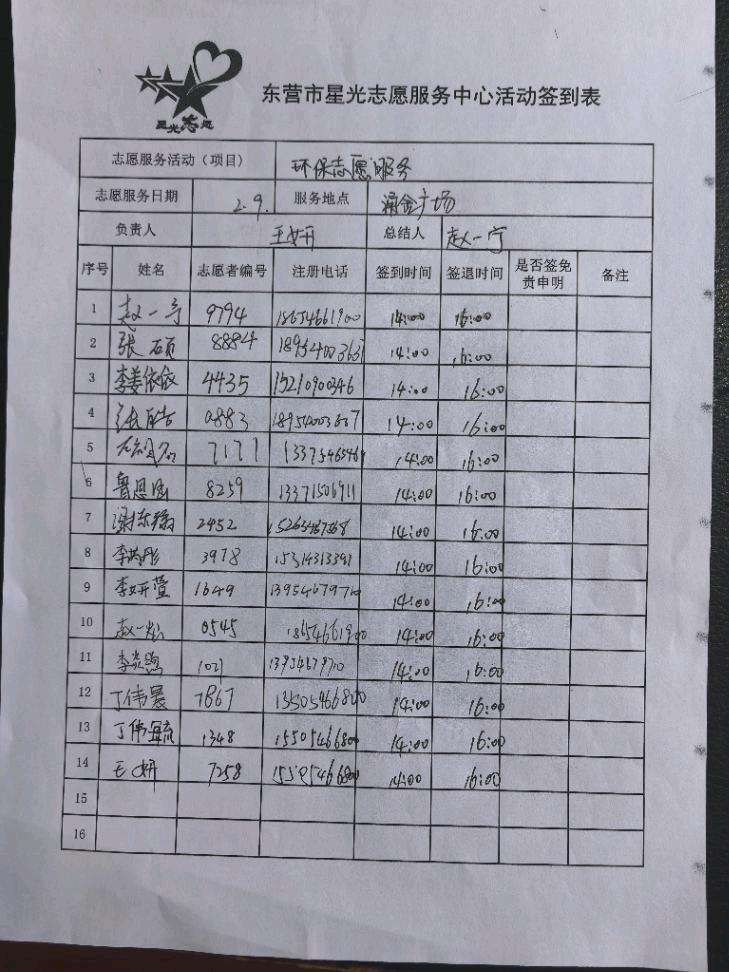 星光志愿
东营市星光志愿服务中心活动签到表
志愿服务活动（项目） 环保志愿服务
志愿服务日期 2.9. 服务地点 广场
负责人 王妍 总结人 赵一宁
序号 姓名 志愿者编号 注册电话 签到时间 签退时间 是否签免责申明 备注
1 赵一宁 9794 18654661900 14:00 16:00
2 张硕 8884 1895400363 14:00 16:00
3 李姜依依 4435 15210900346 14:00 16:00
4 张皓 0883 14:00 16:00
5 7171 1337546546 14:00 16:00
6 鲁恩 8259 13371506911 14:00 16:00
7 2452 14:00 16:00
8 李 3978 15314313391 14:00 16:00
9 李妍萱 1649 1395467971 14:00 16:00
10 赵一 0545 18654661900 14:00 16:00
11 李炎煦 1021 14:00 16:00
12 丁伟晨 7867 13505466800 14:00 16:00
13 丁伟宸 1348 15505466800 14:00 16:00
14 王妍 7258 15505466800 14:00 16:00
15
16